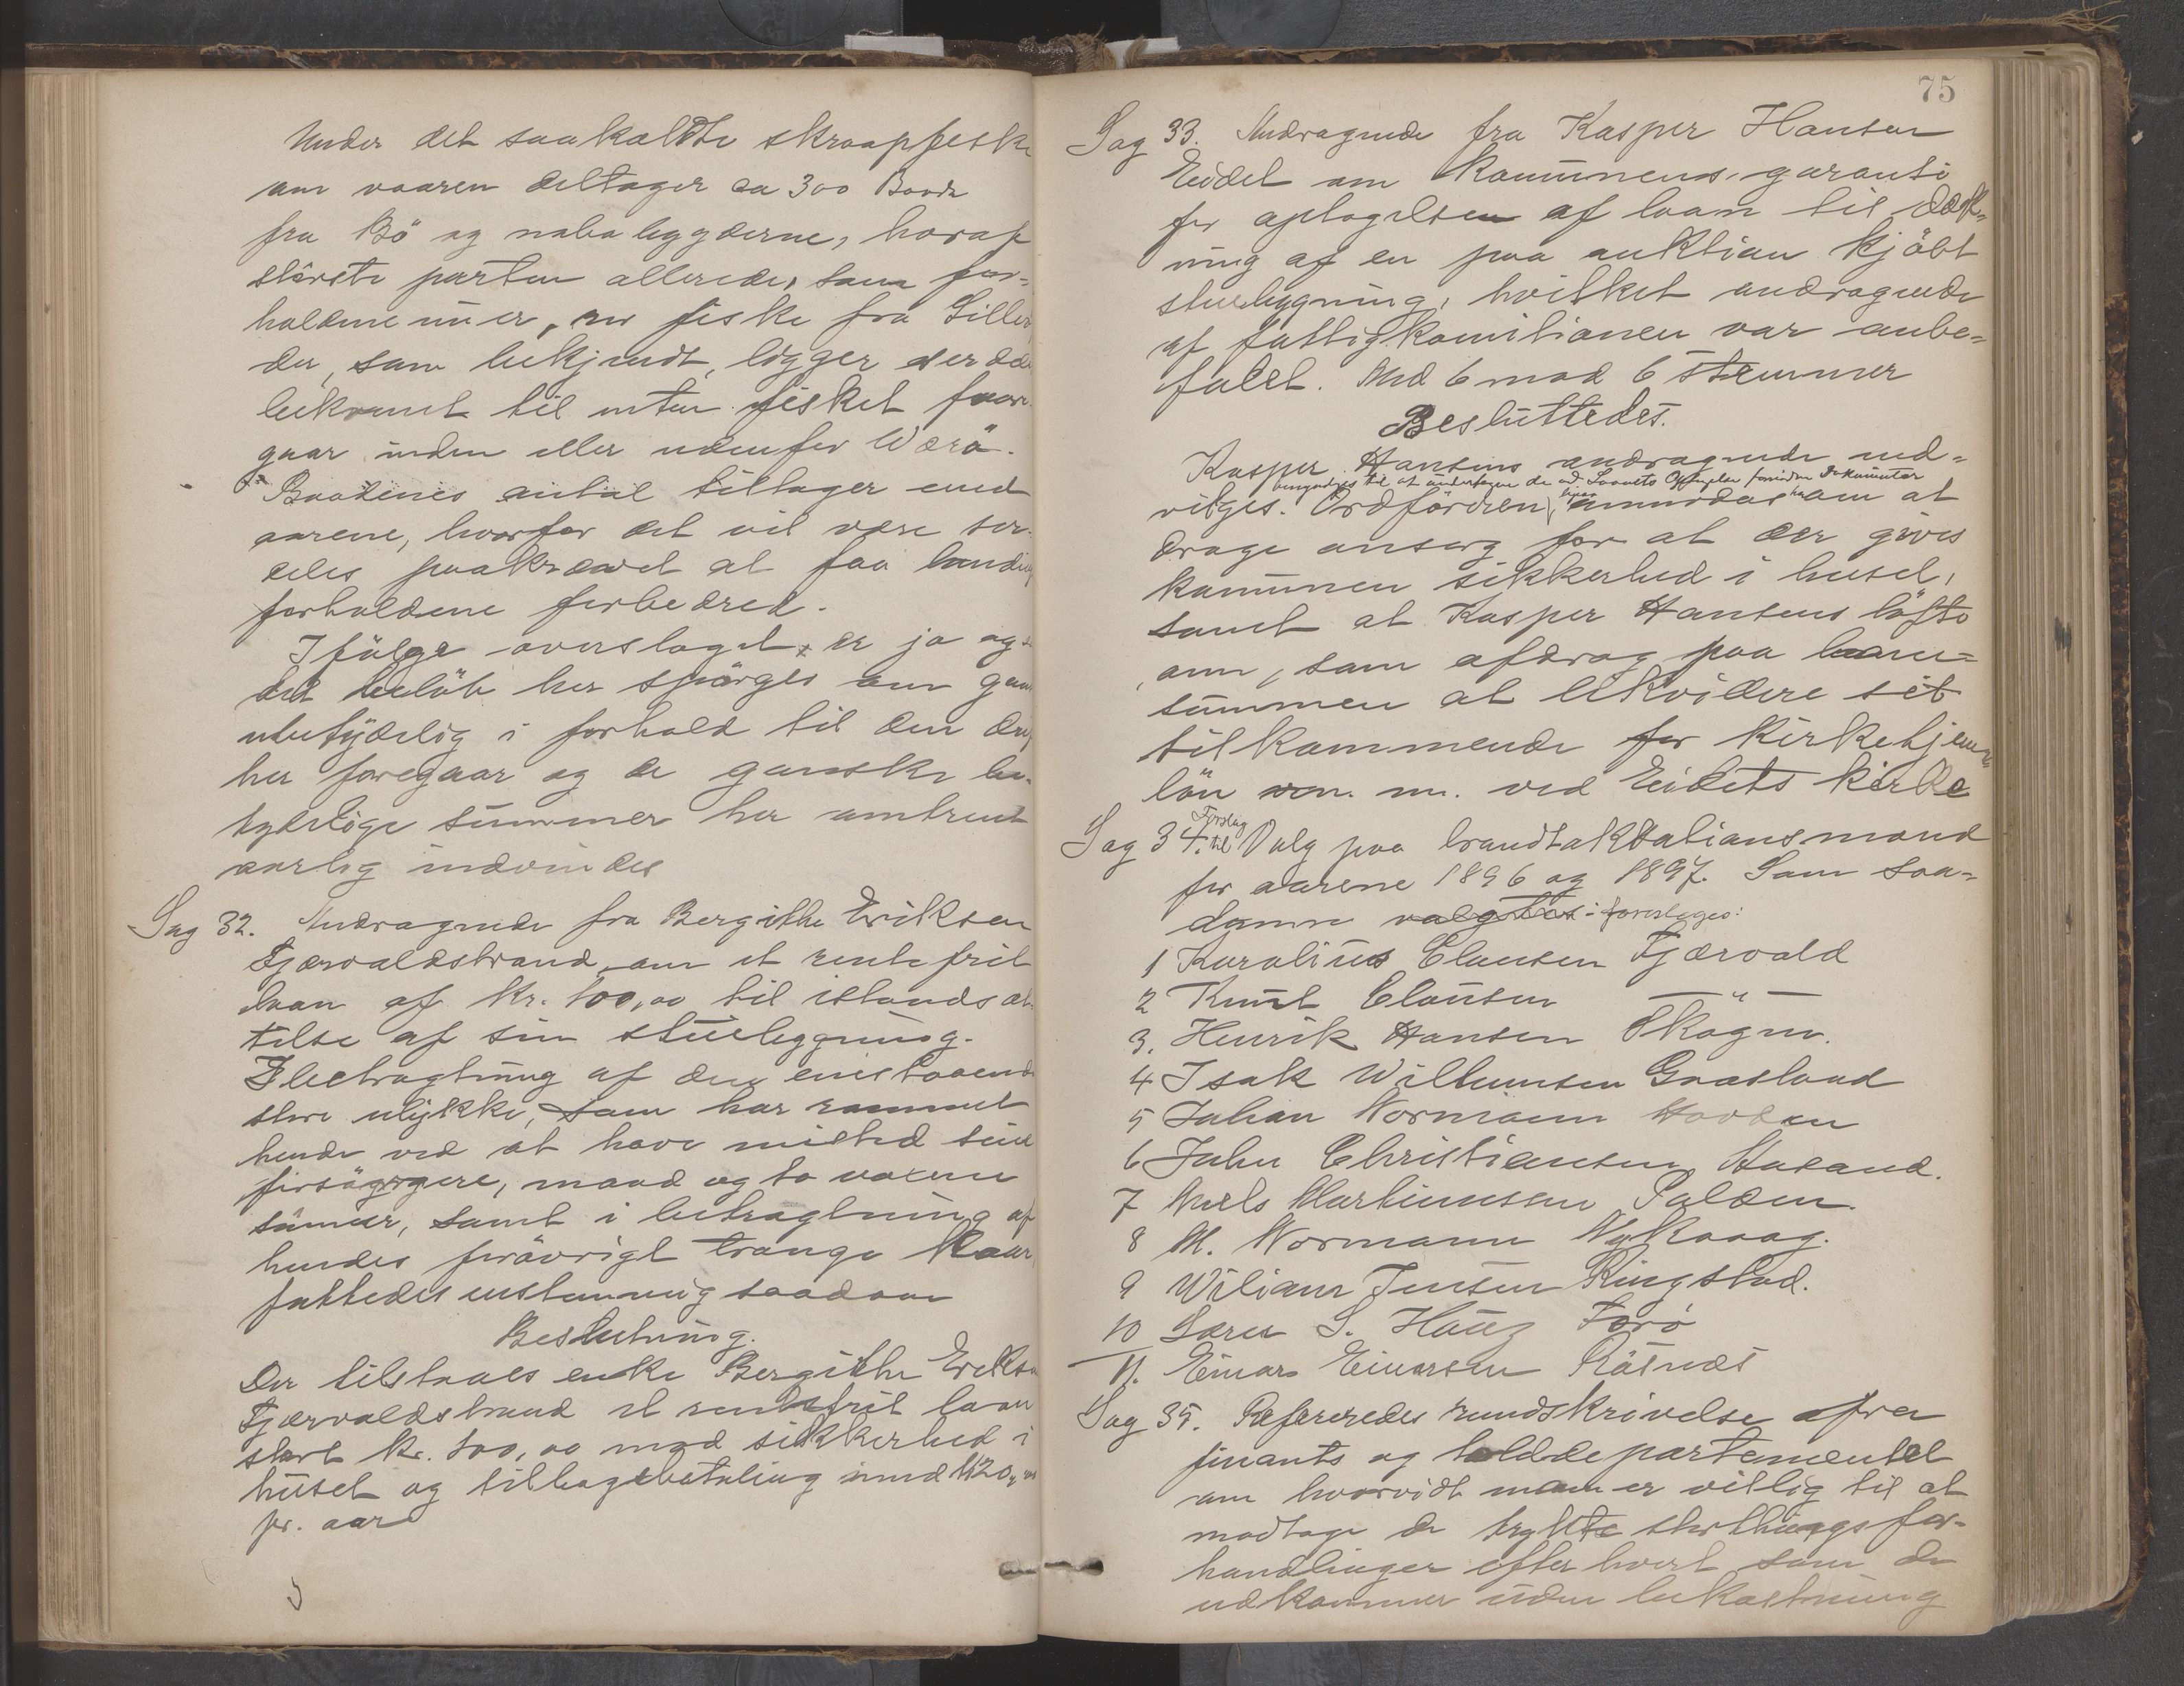 Under det saakaldte skraapfeske
om vaaren deltager ca 300 Baade
fra Bö og nabobygderne, hvoraf
störste parten allerede, som for-
holdene nu er, ror fiske fra Gilles
der, som bekjendt, ligger serde
bekvemt til enten fisket fore
gaar inden eller udenfor Værö.
Baadenes antal tiltager med
aarene, hvorfor det vil være ser-
deles paakrævet at faa landings
forholdene forbedred.
Ifölge overslaget, er jo og
det belöb her spörges om gan
ubetydelig i forhold til den drif
her foregaar og de ganske be-
tydelige summer her omtrent
aarlig indvindes
Sag 32. Andragende fra Bergithe Eriksen
Fjærvoldstrand om et rentefrit
laan af Kr. 100,00 til istandsæt
telse af sin stuebygning.
I betragtning af den enestaaende
store ulykke, som har rammet
hende ved at have misted sine
forsörgere, mand og to voxne
sönner, samt i betragtning af
hendes forövrigt trange kaar
fattedes enstemmig saadan
Beslutning.
Der tilstaaes enke Bergithe Eriksen
Fjærvoldstrand et rentefrit laan
stort Kr. 100,00 mod sikkerhed i
huset og tilbagebetaling med Kr 20,00
pr. aar
75
Sag 33. Andragende fra Kasper Hansen
Eidet om kommunens garanti
for optagelsen af laan til dæk-
ning af en paa auktion kjöbt
stuebygning, hvilket andragende
af fattigkomitionen var anbe-
falet. Med 6 mod 6 stemmer
Besluttedes.
Kasper Hansens andragende ind-
bemyndiges til at undertegne de ad Laanets Optagelse fornödne Dokumenter
vilges. Ordföreren, ligesaa anmodes han om at
drage omsorg for at der gives
kommunen sikkerhed i huset,
samt at Kasper Hansens löfte
om, som afdrag paa laane-
summen at likvidere sit
tilkommende for kirketjener
lön m. m. ved Eidets kirke
Sag 34. Forslag til Valg paa brandtakstationsmænd
for aarene 1896 og 1897. Som saa-
danne valgtes: foreslages:
1 Karolius Clausen Fjærvold
2 Knut Clausen —"—
3. Henrik Hansen Skagen.
4 Isak Wilhumsen Gaasland
5 Johan Normann Hovden
6 John Christiansen Husand.
7 Niels Martinussen Polden.
8 M. Normann Nykvaag.
9 Wiliam Jensen Ringstad.
10 Sören S. Haug Forö
11. Einar Einarsen Rösnes
Sag 35. Refereredes rundskrivelse fra
finants og tolddepartementet
om hvorvidt man er villig til at
modtage de trykte storthingsfor-
handlinger efter hvert som de
udkommer uden bekostning